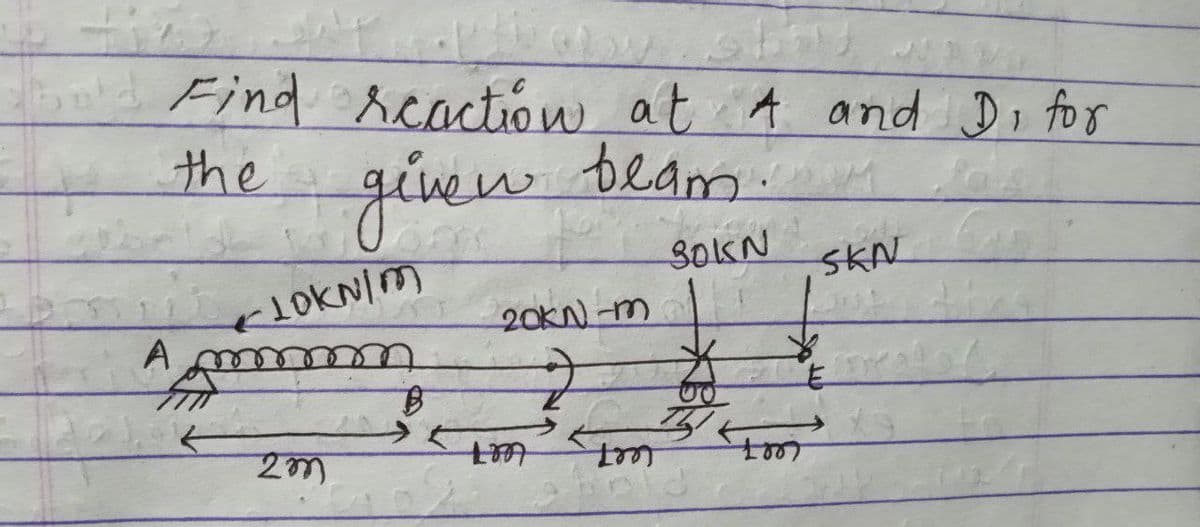 Find reaction at A and D, for
the given beam.
30KN 5KN
10KN/m
20KN-m
A
B
E
2m 1m 1m 1m